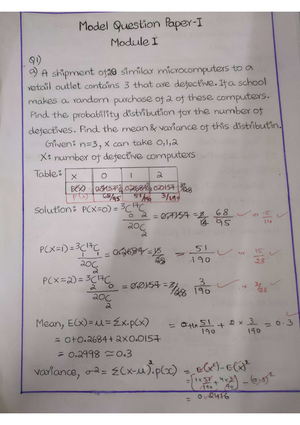 Model Question Paper-I
Module I
Q1)
a) A shipment of 20 similar microcomputers to a
retail outlet contains 3 that are defective. If a school
makes a random purchase of 2 of these computers.
Find the probability distribution for the number of
defectives. Find the mean & variance of this distributin.
Given: n=3, X can take 0,1,2
X: number of defective computers
Table: X 0 1 2
P(X) 68/95 51/190 3/190
Solution: P(X=0) = 3C0 17C2 / 20C2 = 68/95
P(X=1) = 3C1 17C1 / 20C2 = 0.2684 = 15/28 = 51/190 = 15/28
P(X=2) = 3C2 17C0 / 20C2 = 0.0157 = 3/28 = 3/190 = 3/28
Mean, E(x) = μ = Σx.p(x) = 0+1x 51/190 + 2 x 3/190 = 0.3
= 0+0.2684+2x0.0157
= 0.2998 ≃ 0.3
variance, σ² = Σ(x-μ)².p(x) = E(x²) - E(x)²